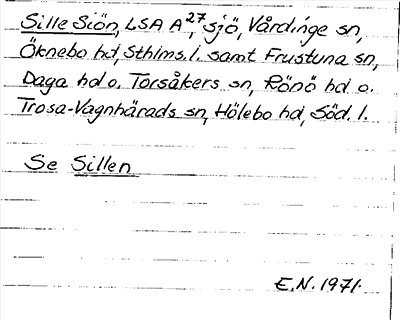 Sille Siön, LSA A 27, sjö, Vårdinge sn,
Öknebo hd, Sthlms. l. samt Frustuna sn,
Daga hd o. Torsåkers sn, Rönö hd o.
Trosa-Vagnhärads sn, Hölebo hd, Söd. l.
Se Sillen
E.N. 1971.